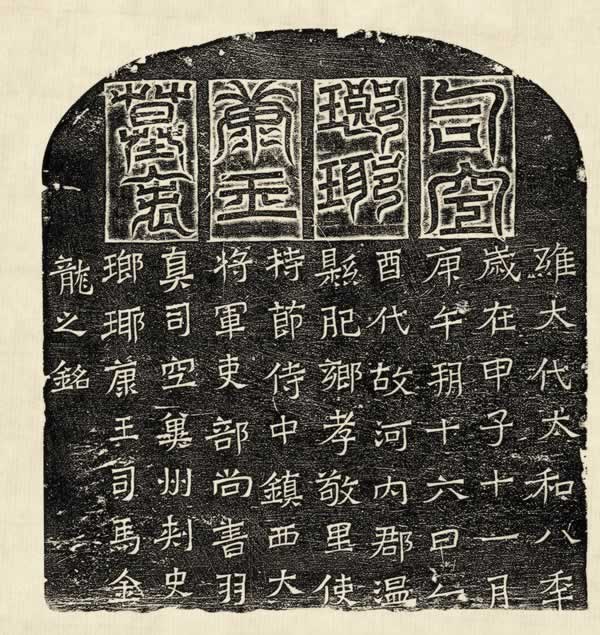 司空
瑯琊
康王
墓表
維大代太和八年
歲在甲子十一月
庚午朔十六日乙
酉代故河内郡溫
縣肥鄉孝敬里使
持節侍中鎮西大
將軍吏部尚書羽
真司空冀州刺史
瑯琊康王司馬金
龍之銘